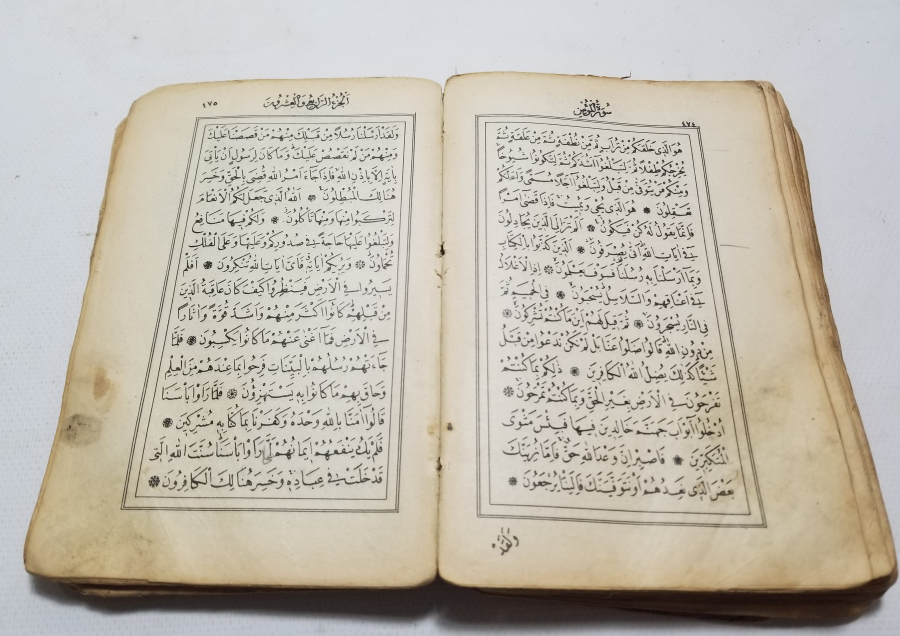 سُورَةُ الْمُؤْمِنِ
٤٧٤
هُوَ الَّذِى خَلَقَكُمْ مِنْ تُرَابٍ ثُمَّ مِنْ نُطْفَةٍ ثُمَّ مِنْ عَلَقَةٍ ثُمَّ
يُخْرِجُكُمْ طِفْلًا ثُمَّ لِتَبْلُغُوا اَشُدَّكُمْ ثُمَّ لِتَكُونُوا شُيُوخًا
وَمِنْكُمْ مَنْ يُتَوَفّٰى مِنْ قَبْلُ وَلِتَبْلُغُوا اَجَلًا مُسَمًّى وَلَعَلَّكُمْ
تَعْقِلُونَ ❋ هُوَ الَّذِى يُحْيِى وَيُمِيتُ فَاِذَا قَضٰى اَمْرًا
فَاِنَّمَا يَقُولُ لَهُ كُنْ فَيَكُونُ ❋ اَلَمْ تَرَ اِلَى الَّذِينَ يُجَادِلُونَ
فِى اٰيَاتِ اللّٰهِ اَنّٰى يُصْرَفُونَ ❋ اَلَّذِينَ كَذَّبُوا بِالْكِتَابِ
وَبِمَا اَرْسَلْنَا بِهِ رُسُلَنَا فَسَوْفَ يَعْلَمُونَ ❋ اِذِ الْاَغْلَالُ
فِى اَعْنَاقِهِمْ وَالسَّلَاسِلُ يُسْحَبُونَ ❋ فِى الْحَمِيمِ ثُمَّ
فِى النَّارِ يُسْجَرُونَ ❋ ثُمَّ قِيلَ لَهُمْ اَيْنَ مَا كُنْتُمْ تُشْرِكُونَ ❋
مِنْ دُونِ اللّٰهِ قَالُوا ضَلُّوا عَنَّا بَلْ لَمْ نَكُنْ نَدْعُوا مِنْ قَبْلُ
شَيْئًا كَذٰلِكَ يُضِلُّ اللّٰهُ الْكَافِرِينَ ❋ ذٰلِكُمْ بِمَا كُنْتُمْ
تَفْرَحُونَ فِى الْاَرْضِ بِغَيْرِ الْحَقِّ وَبِمَا كُنْتُمْ تَمْرَحُونَ ❋
اُدْخُلُوا اَبْوَابَ جَهَنَّمَ خَالِدِينَ فِيهَا فَبِئْسَ مَثْوَى
الْمُتَكَبِّرِينَ ❋ فَاصْبِرْ اِنَّ وَعْدَ اللّٰهِ حَقٌّ فَاِمَّا نُرِيَنَّكَ
بَعْضَ الَّذِى نَعِدُهُمْ اَوْ نَتَوَفَّيَنَّكَ فَاِلَيْنَا يُرْجَعُونَ ❋
وَلَقَدْ
اَلْجُزْءُ الرَّابِعُ وَالْعِشْرُونَ
٤٧٥
وَلَقَدْ اَرْسَلْنَا رُسُلًا مِنْ قَبْلِكَ مِنْهُمْ مَنْ قَصَصْنَا عَلَيْكَ
وَمِنْهُمْ مَنْ لَمْ نَقْصُصْ عَلَيْكَ وَمَا كَانَ لِرَسُولٍ اَنْ يَأْتِىَ
بِاٰيَةٍ اِلَّا بِاِذْنِ اللّٰهِ فَاِذَا جَاءَ اَمْرُ اللّٰهِ قُضِىَ بِالْحَقِّ وَخَسِرَ
هُنَالِكَ الْمُبْطِلُونَ ❋ اَللّٰهُ الَّذِى جَعَلَ لَكُمُ الْاَنْعَامَ
لِتَرْكَبُوا مِنْهَا وَمِنْهَا تَأْكُلُونَ ❋ وَلَكُمْ فِيهَا مَنَافِعُ
وَلِتَبْلُغُوا عَلَيْهَا حَاجَةً فِى صُدُورِكُمْ وَعَلَيْهَا وَعَلَى الْفُلْكِ
تُحْمَلُونَ ❋ وَيُرِيكُمْ اٰيَاتِهِ فَاَىَّ اٰيَاتِ اللّٰهِ تُنْكِرُونَ ❋ اَفَلَمْ
يَسِيرُوا فِى الْاَرْضِ فَيَنْظُرُوا كَيْفَ كَانَ عَاقِبَةُ الَّذِينَ
مِنْ قَبْلِهِمْ كَانُوا اَكْثَرَ مِنْهُمْ وَاَشَدَّ قُوَّةً وَاٰثَارًا
فِى الْاَرْضِ فَمَا اَغْنٰى عَنْهُمْ مَا كَانُوا يَكْسِبُونَ ❋ فَلَمَّا
جَاءَتْهُمْ رُسُلُهُمْ بِالْبَيِّنَاتِ فَرِحُوا بِمَا عِنْدَهُمْ مِنَ الْعِلْمِ
وَحَاقَ بِهِمْ مَا كَانُوا بِهِ يَسْتَهْزِؤُنَ ❋ فَلَمَّا رَاَوْا بَأْسَنَا
قَالُوا اٰمَنَّا بِاللّٰهِ وَحْدَهُ وَكَفَرْنَا بِمَا كُنَّا بِهِ مُشْرِكِينَ ❋
فَلَمْ يَكُ يَنْفَعُهُمْ اِيمَانُهُمْ لَمَّا رَاَوْا بَأْسَنَا سُنَّتَ اللّٰهِ الَّتِى
قَدْ خَلَتْ فِى عِبَادِهِ وَخَسِرَ هُنَالِكَ الْكَافِرُونَ ❋